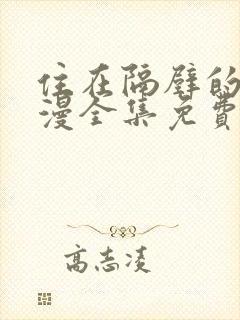 住在隔壁的
漫全集免费
高志凌